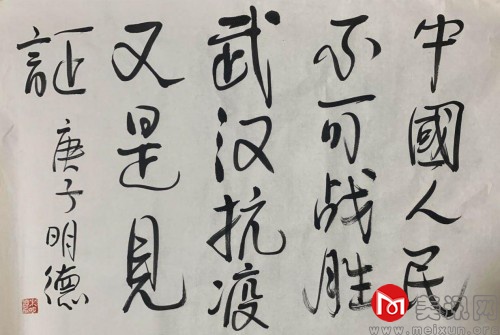 中國人民
不可战胜
武汉抗疫
又是見
証
庚子明德
美讯网
www.meixun.org